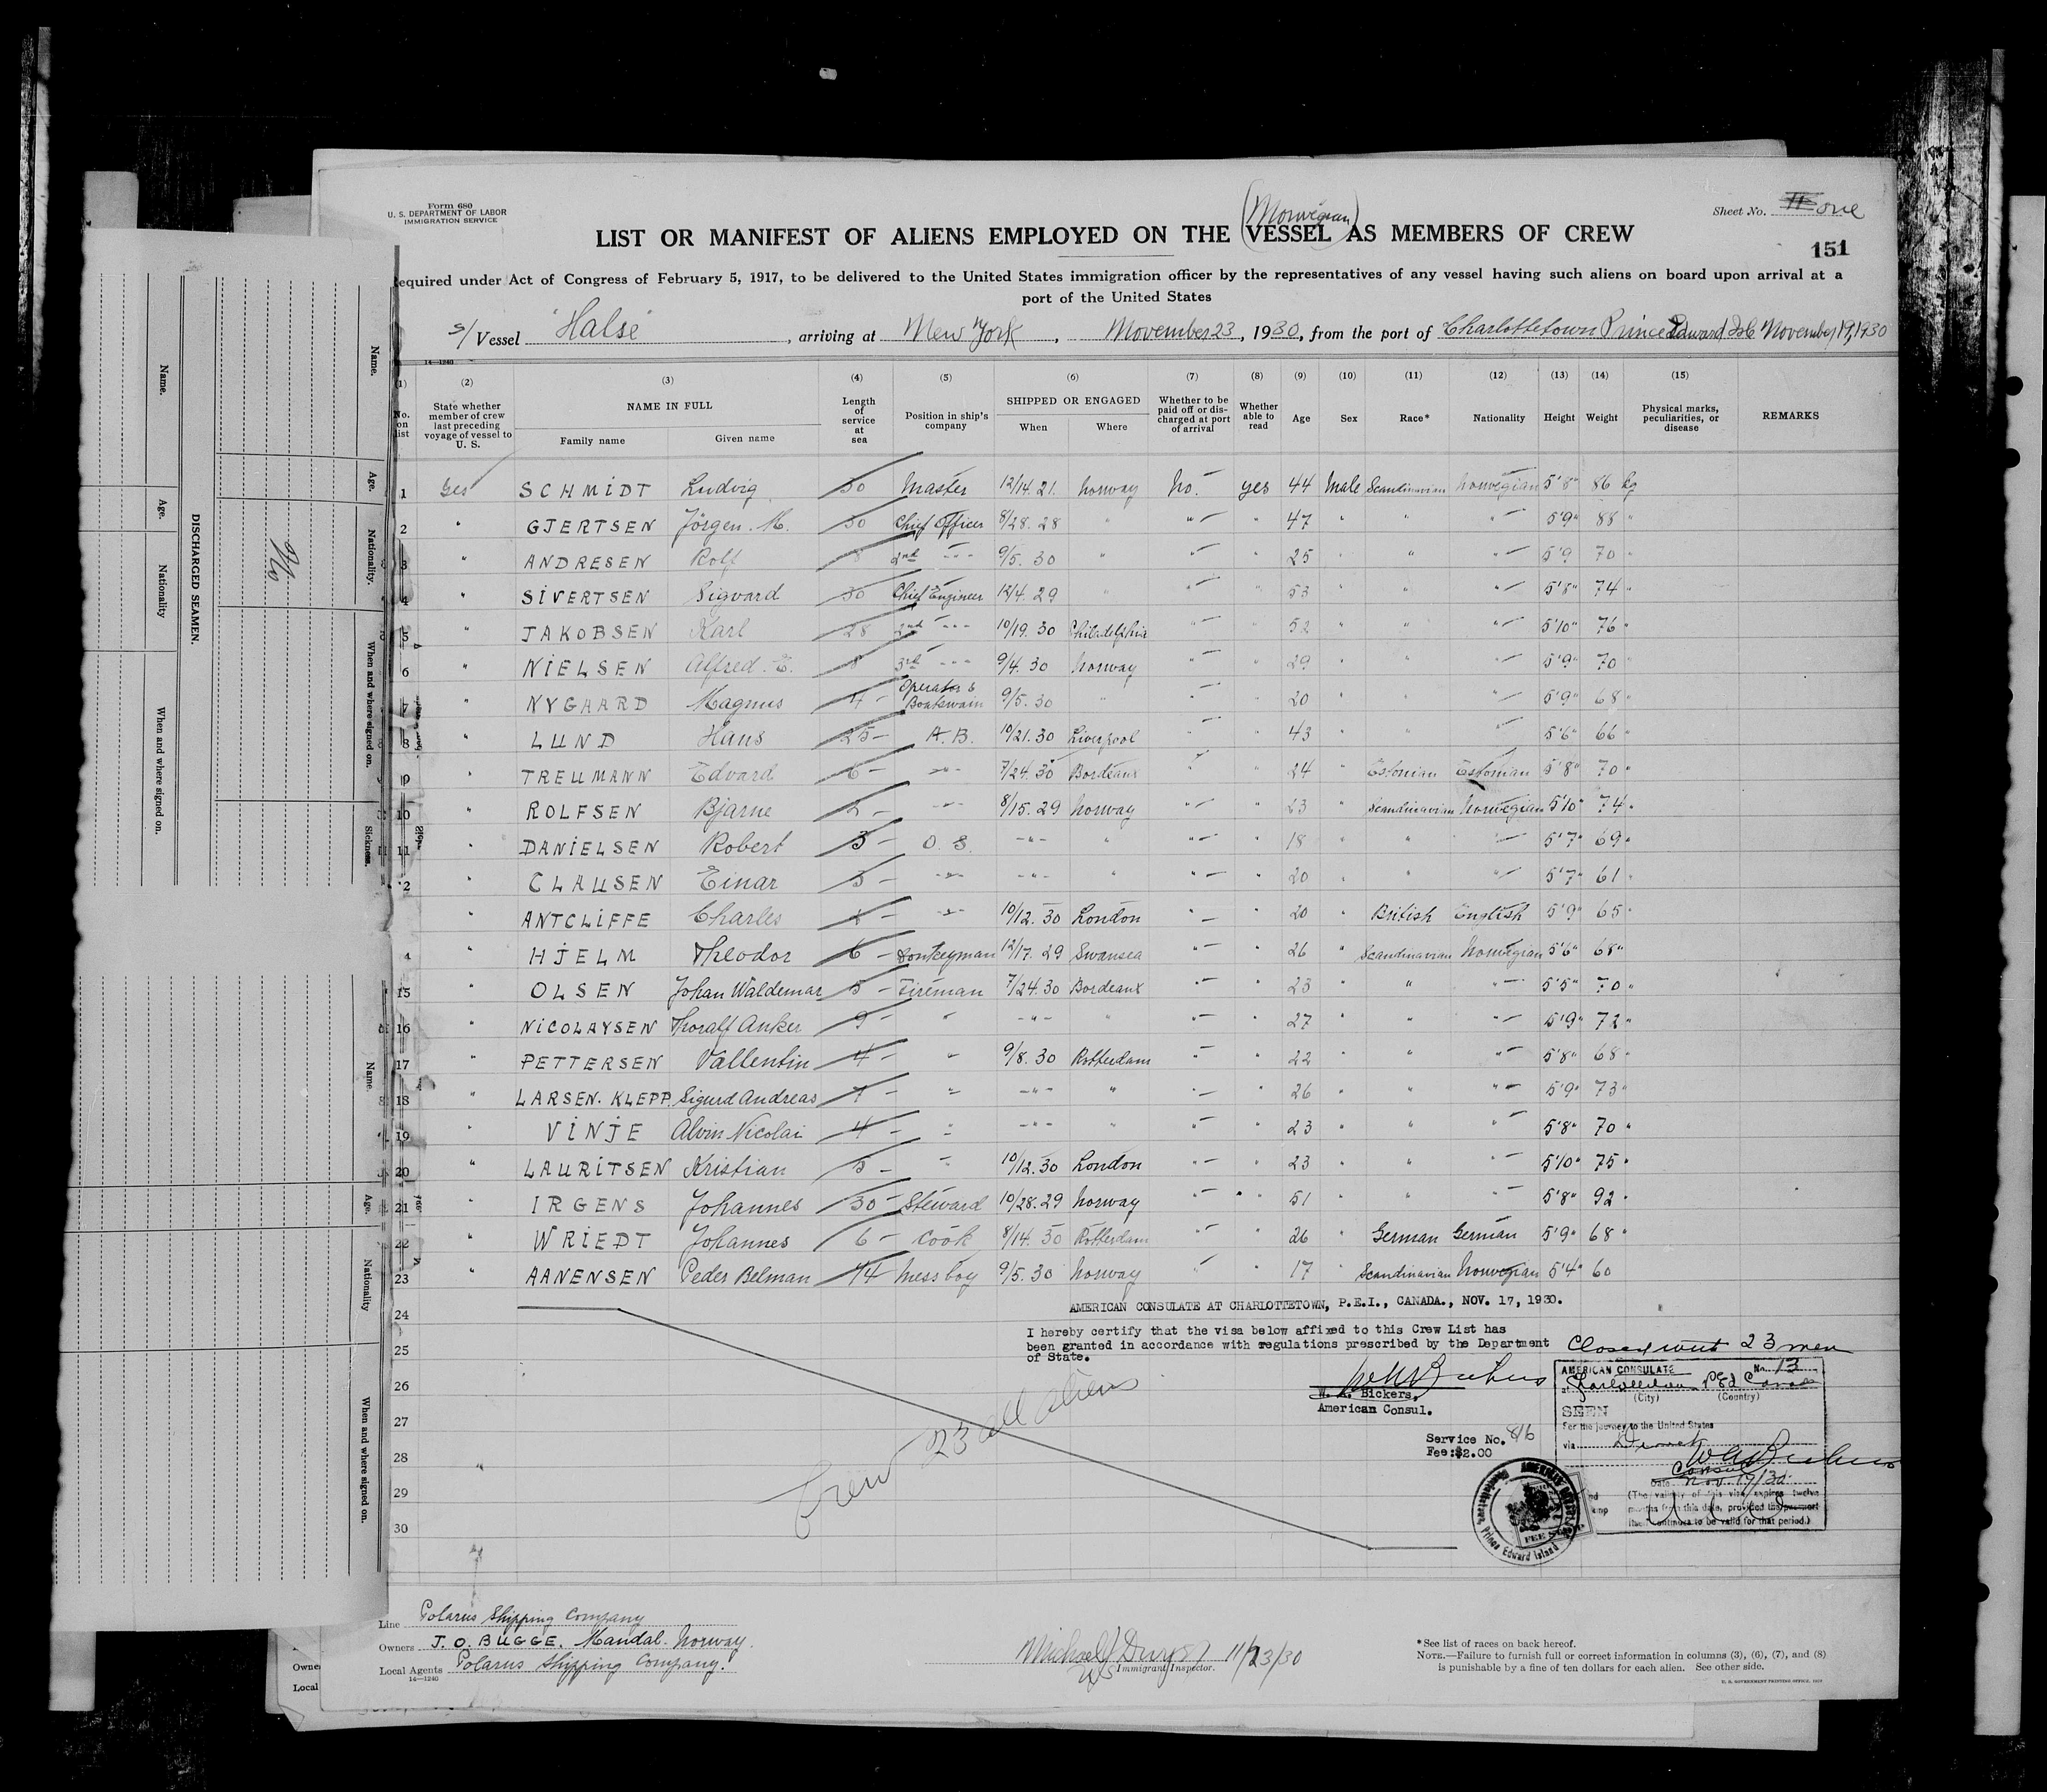 Form 680
U. S. DEPARTMENT OF LABOR
IMMIGRATION SERVICE
Sheet No. one
(Norwegian)
LIST OR MANIFEST OF ALIENS EMPLOYED ON THE VESSEL AS MEMBERS OF CREW
151
equired under Act of Congress of February 5, 1917, to be delivered to the United States immigration officer by the representatives of any vessel having such aliens on board upon arrival at a
port of the United States
S/ Vessel "Halse", arriving at New York, November 23, 1930, from the port of Charlottetown Prince Edward Isl November 19, 1930
14—1240
(1) (2) (3) (4) (5) (6) (7) (8) (9) (10) (11) (12) (13) (14) (15)
No. on list
State whether member of crew last preceding voyage of vessel to U. S.
NAME IN FULL
Family name Given name
Length of service at sea
Position in ship's company
SHIPPED OR ENGAGED
When Where
Whether to be paid off or discharged at port of arrival
Whether able to read
Age Sex Race* Nationality Height Weight
Physical marks, peculiarities, or disease
REMARKS
1 Yes SCHMIDT Ludvig 30 Master 12/14. 21. Norway No. yes 44 Male Scandinavian Norwegian 5'8" 86 kg
2 " GJERTSEN Jörgen. M. 30 Chief Officer 8/28. 28 " " " 47 " " " 5'9" 88 "
3 " ANDRESEN Rolf 8 2nd -"- 9/5. 30 " " " 25 " " " 5'9 70 "
4 " SIVERTSEN Sigvard 30 Chief Engineer 12/4. 29 " " " 53 " " " 5'8" 74 "
5 " JAKOBSEN Karl 28 2nd -"- 10/19. 30 Philadelphia " " 52 " " " 5'10" 76 "
6 " NIELSEN Alfred. E. 8 3rd -"- 9/4. 30 Norway " " 29 " " " 5'9" 70 "
7 " NYGAARD Magnus 4 - Operator & Boatswain 9/5. 30 " " " 20 " " " 5'9" 68 "
8 " LUND Hans 25 - A. B. 10/21. 30 Liverpool " " 43 " " " 5'6" 66 "
9 " TREUMANN Edvard 6 - -"- 7/24. 30 Bordeaux " " 24 " Estonian Estonian 5'8" 70 "
10 " ROLFSEN Bjarne 2 - -"- 8/15. 29 Norway " " 23 " Scandinavian Norwegian 5'10" 74 "
11 " DANIELSEN Robert 3 - O. S. -"- " " " 18 " " " 5'7" 69 "
2 " CLAUSEN Einar 3 - -"- -"- " " " 20 " " " 5'7" 61 "
" ANTCLIFFE Charles - -"- 10/12. 30 London " " 20 " British English 5'9" 65 "
4 " HJELM Theodor 6 - Donkeyman 12/17. 29 Swansea " " 26 " Scandinavian Norwegian 5'6" 68 "
15 " OLSEN Johan Waldemar 5 - Fireman 7/24. 30 Bordeaux " " 23 " " " 5'5" 70 "
16 " NICOLAYSEN Thoralf Anker 9 - " -"- " " " 27 " " " 5'9" 72 "
17 " PETTERSEN Vallentin 4 - " 9/8. 30 Rotterdam " " 22 " " " 5'8" 68 "
18 " LARSEN. KLEPP. Sigurd Andreas 7 - " -"- " " " 26 " " " 5'9" 73 "
19 " VINJE Alvin Nicolai 4 - " -"- " " " 23 " " " 5'8" 70 "
20 " LAURITSEN Kristian 5 - " 10/12. 30 London " " 23 " " " 5'10" 75 "
21 " IRGENS Johannes 30 - Steward 10/28. 29 Norway " " 51 " " " 5'8" 92 "
22 " WRIEDT Johannes 6 - Cook 8/14. 30 Rotterdam " " 26 " German German 5'9" 68 "
23 " AANENSEN Peder Belman Messboy 9/5. 30 Norway " " 17 " Scandinavian Norwegian 5'4" 60
24
25
26
27
28
29
30
AMERICAN CONSULATE AT CHARLOTTETOWN, P.E.I., CANADA., NOV. 17, 1930.
I hereby certify that the visa below affixed to this Crew List has
been granted in accordance with regulations prescribed by the Department
of State.
W. A. Bickers,
American Consul.
Service No. 816
Fee:$2.00
Closed with 23 men
AMERICAN CONSULATE No. 13
at Charlottetown P.E.I. Canada
(City) (Country)
SEEN
For the journey to the United States
via Direct
Consul
Date Nov. 17/30
(The validity of this visa expires twelve
months from this date, provided the passport
itself continues to be valid for that period.)
Prince Edward Island
Crew 23 all aliens
Line Polarus Shipping Company
Owners J. O. BUGGE. Mandal. Norway.
Local Agents Polarus Shipping Company.
14—1240
Michael 11/23/30
US Immigrant Inspector.
*See list of races on back hereof.
NOTE.—Failure to furnish full or correct information in columns (3), (6), (7), and (8)
is punishable by a fine of ten dollars for each alien. See other side.
U. S. GOVERNMENT PRINTING OFFICE
DISCHARGED SEAMEN.
Name. Age. Nationality. When and where signed on. Sickness.
Name. Age. Nationality When and where signed on.
Name. Age. Nationality When and where signed on.
No
Owne
Local